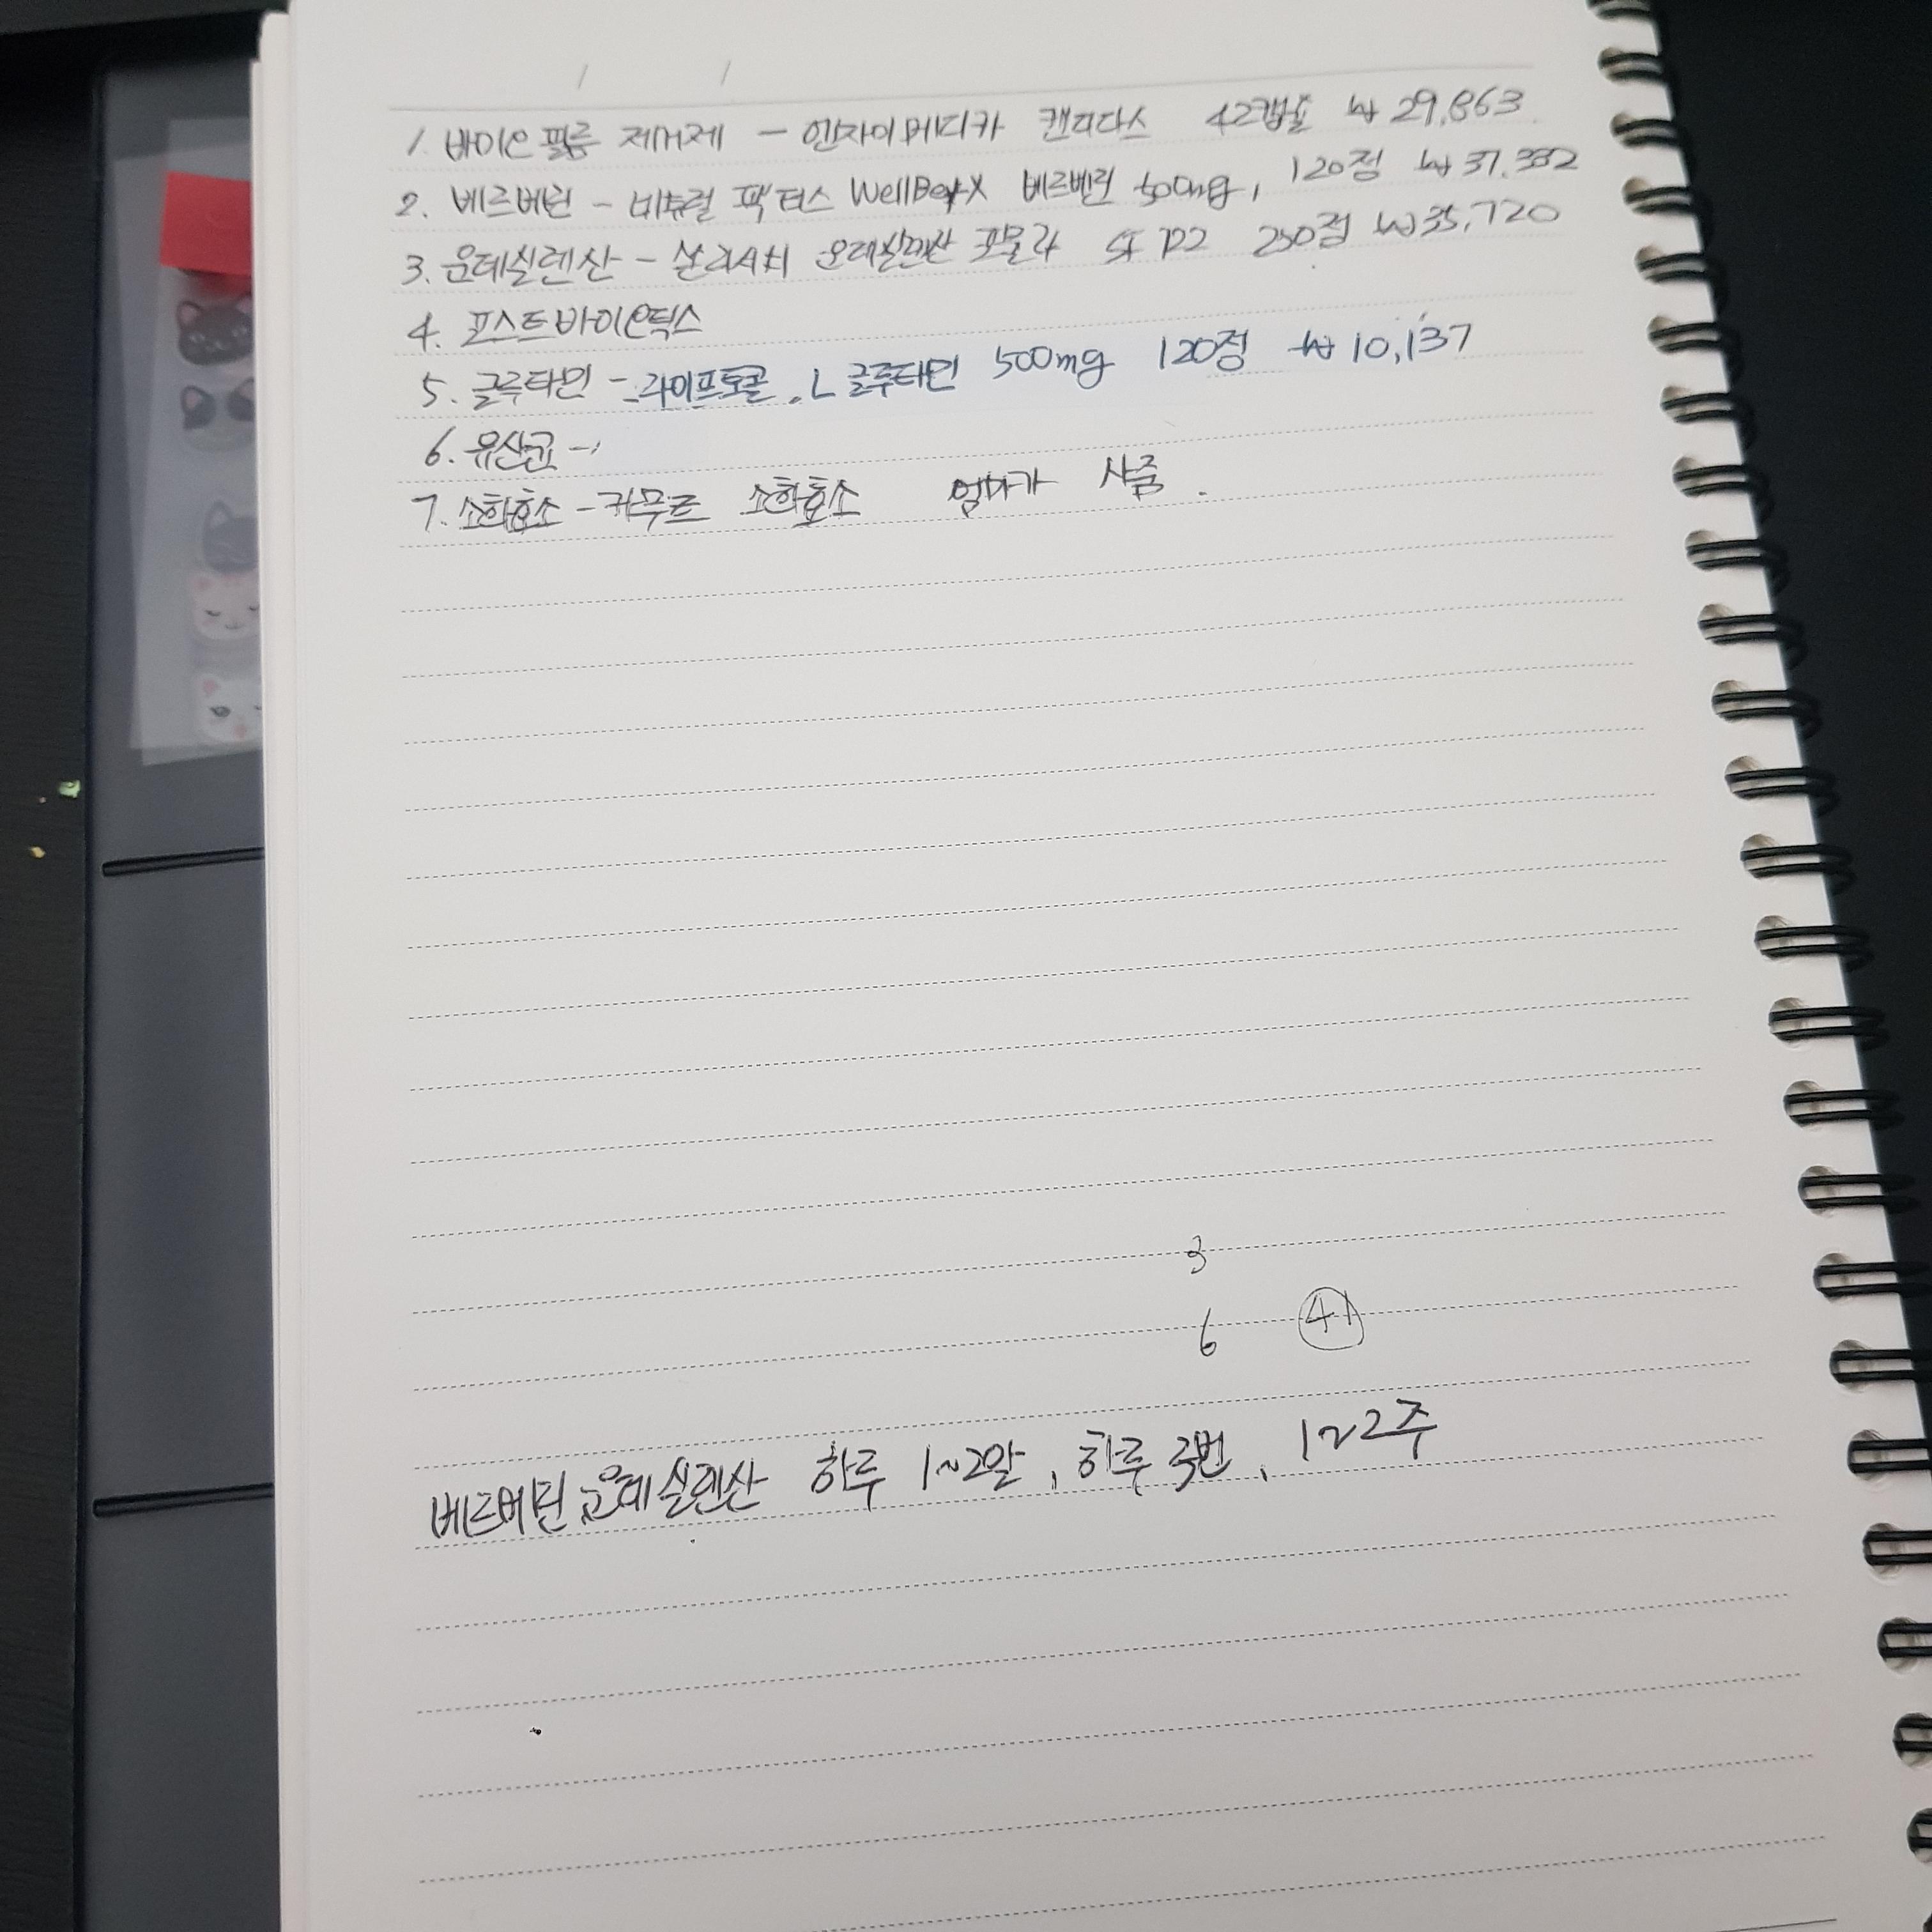 1. 바이오 필름 제거제 - 엔자이메디카 캔디다스 42캡슐 ₩29,863
2. 베르버린 - 내츄럴 팩터스 WellBetX 베르벤린 500mg, 120정 ₩37.332
3. 운데실렌산 - 운데실렌산 포뮬라 SF 722 250정 ₩35,720
4. 포스트바이오틱스
5. 글루타민 - 라이프토콜. L 글루타민 500mg 120정 ₩10,137
6. 유산균 -
7. 소화효소 - 카무트 소화효소 엄마가 사줌.
3
6 41
베르버린, 운데실렌산 하루 1~2알, 하루 3번, 1~2주